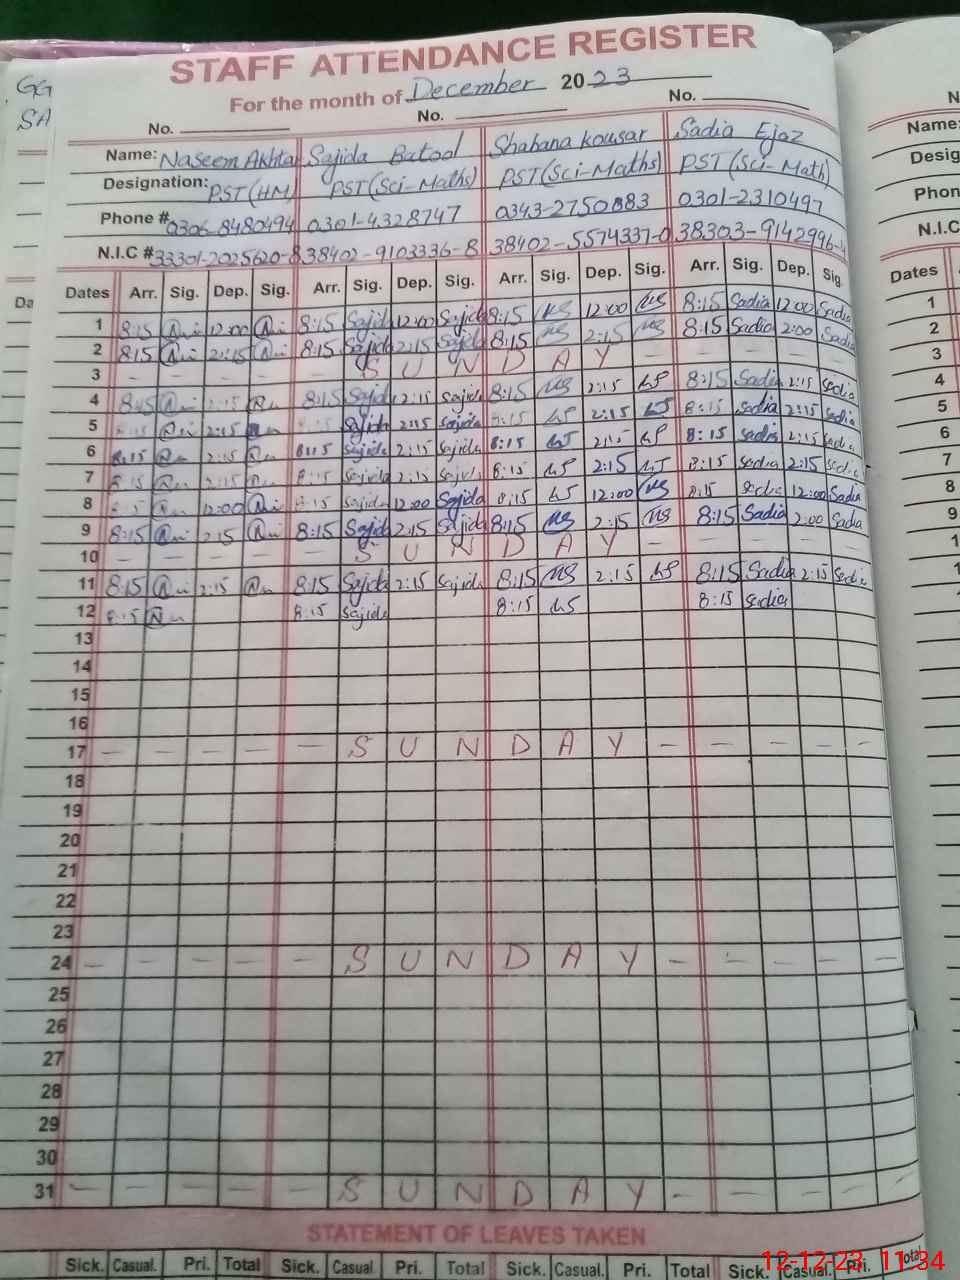 GG
SA
STAFF ATTENDANCE REGISTER
For the month of December 2023
No. No. No.
Name: Naseem Akhtar Sajida Batool Shabana Kousar Sadia Ejaz
Designation: PST(HM) PST(Sci-Maths) PST(Sci-Maths) PST(Sci-Math)
Phone # 0306-8480494 0301-4328747 0343-2750883 0301-2310497
N.I.C # 33301-2025620-8 38402-9103336-8 38402-5574337-0 38303-9142996-4
Dates Arr. Sig. Dep. Sig. Arr. Sig. Dep. Sig. Arr. Sig. Dep. Sig. Arr. Sig. Dep. Sig.
1 8:15 12:00 8:15 Sajida 12:00 Sajida 8:15 12:00 8:15 Sadia 12:00 Sadia
2 8:15 2:15 8:15 Sajida 2:15 Sajida 8:15 2:15 8:15 Sadia 2:00 Sadia
3 - - - - - S U N D A Y - - - - -
4 8:15 2:15 8:15 Sajida 2:15 Sajida 8:15 2:15 8:15 Sadia 2:15 Sadia
5 8:15 2:15 8:15 Sajida 2:15 Sajida 8:15 2:15 8:15 Sadia 2:15 Sadia
6 8:15 2:15 8:15 Sajida 2:15 Sajida 8:15 2:15 8:15 Sadia 2:15 Sadia
7 8:15 2:15 8:15 Sajida 2:15 Sajida 8:15 2:15 8:15 Sadia 2:15 Sadia
8 8:15 12:00 8:15 Sajida 12:00 Sajida 8:15 12:00 8:15 Sadia 12:00 Sadia
9 8:15 2:15 8:15 Sajida 2:15 Sajida 8:15 2:15 8:15 Sadia 2:00 Sadia
10 - - - - - S U N D A Y - - - - -
11 8:15 2:15 8:15 Sajida 2:15 Sajida 8:15 2:15 8:15 Sadia 2:15 Sadia
12 8:15 8:15 Sajida 8:15 8:15 Sadia
13
14
15
16
17 - - - - - S U N D A Y - - - - -
18
19
20
21
22
23
24 - - - - - S U N D A Y - - - - -
25
26
27
28
29
30
31 - - - - - S U N D A Y - - - - -
STATEMENT OF LEAVES TAKEN
Sick. Casual. Pri. Total Sick. Casual. Pri. Total Sick. Casual. Pri. Total Sick. Casual. Pri. Total
Name:
Phon
N.I.C
Dates
1
2
3
4
5
6
7
8
9
12-12-23 11:34